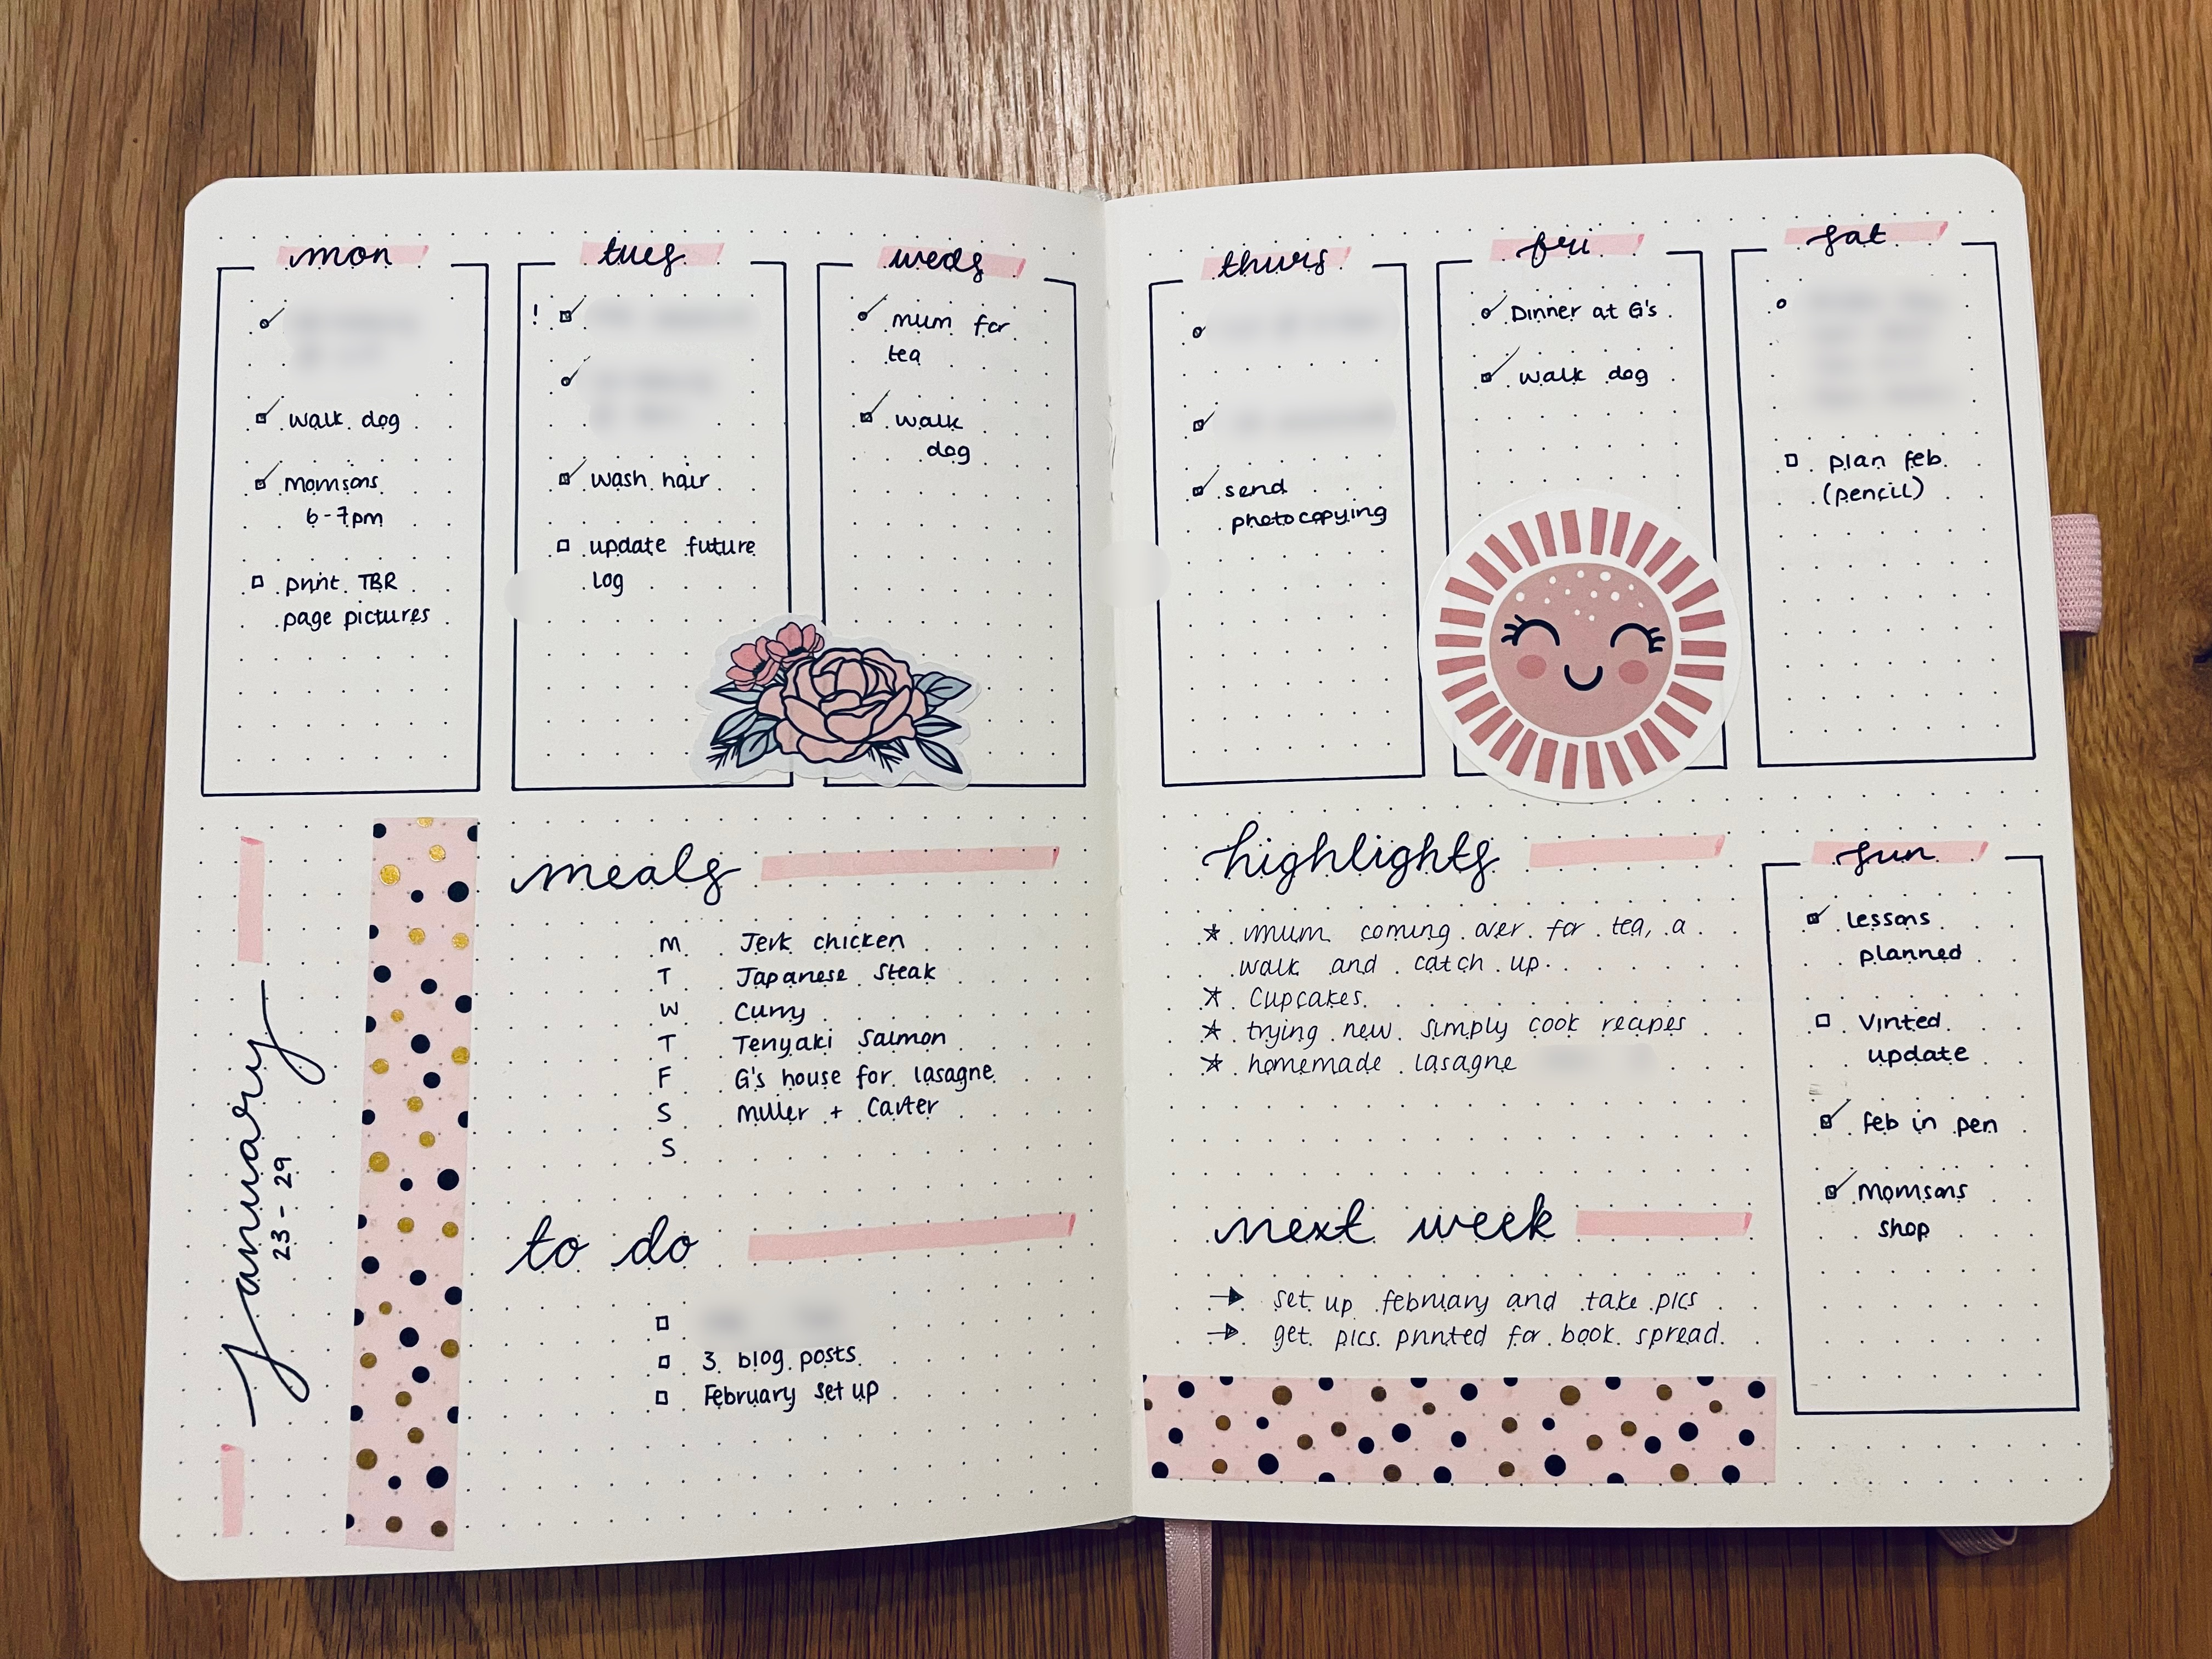 mon
walk dog
Momsons
6-7pm
print TBR
page pictures
tues
!
wash hair
update future
log
weds
mum for
tea
walk
dog
thurs
send
photocopying
fri
Dinner at G's
walk dog
sat
plan feb
(pencil)
january
23-29
meals
M Jerk chicken
T Japanese Steak
W Curry
T Teriyaki Salmon
F G's house for lasagne
S Miller + Carter
S
to do
3 blog posts
February set up
highlights
mum coming over for tea, a
walk and catch up.
Cupcakes.
trying new simply cook recipes
homemade lasagne
next week
→ set up february and take pics
→ get pics printed for book spread.
sun
lessons
planned
Vinted
update
feb in pen
Momsons
shop